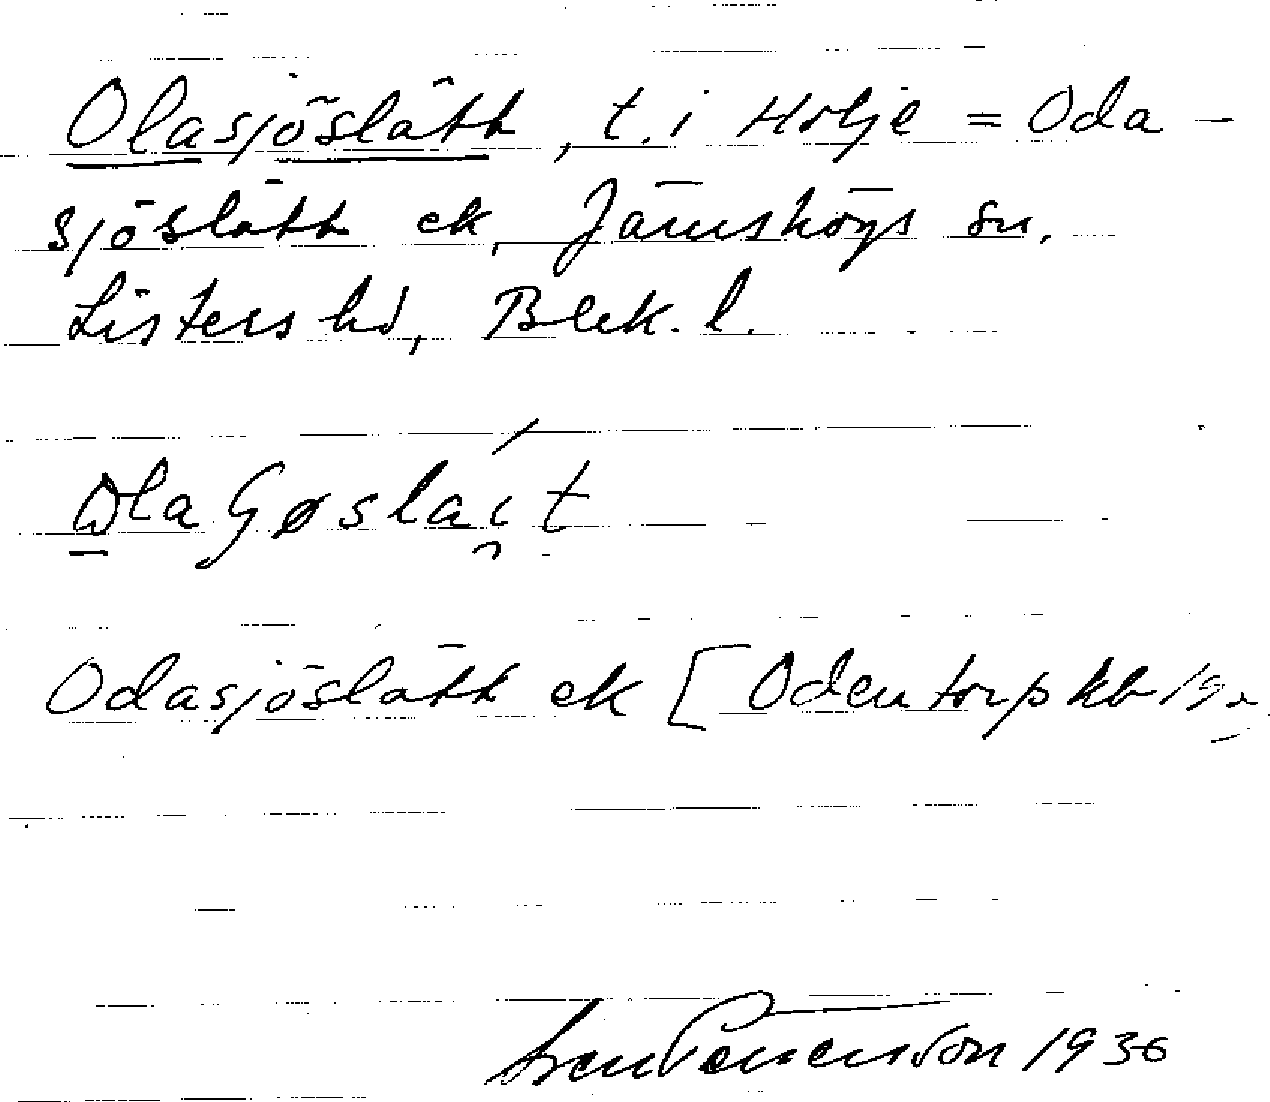 Olasjöslätt, t. i Holje = Oda-
sjöslätt ek, Jämshögs sn,
Listers hd, Blek. l.
Ola Gøslait
Odasjöslätt ek [Odentorp kb
Sven Benson 1936